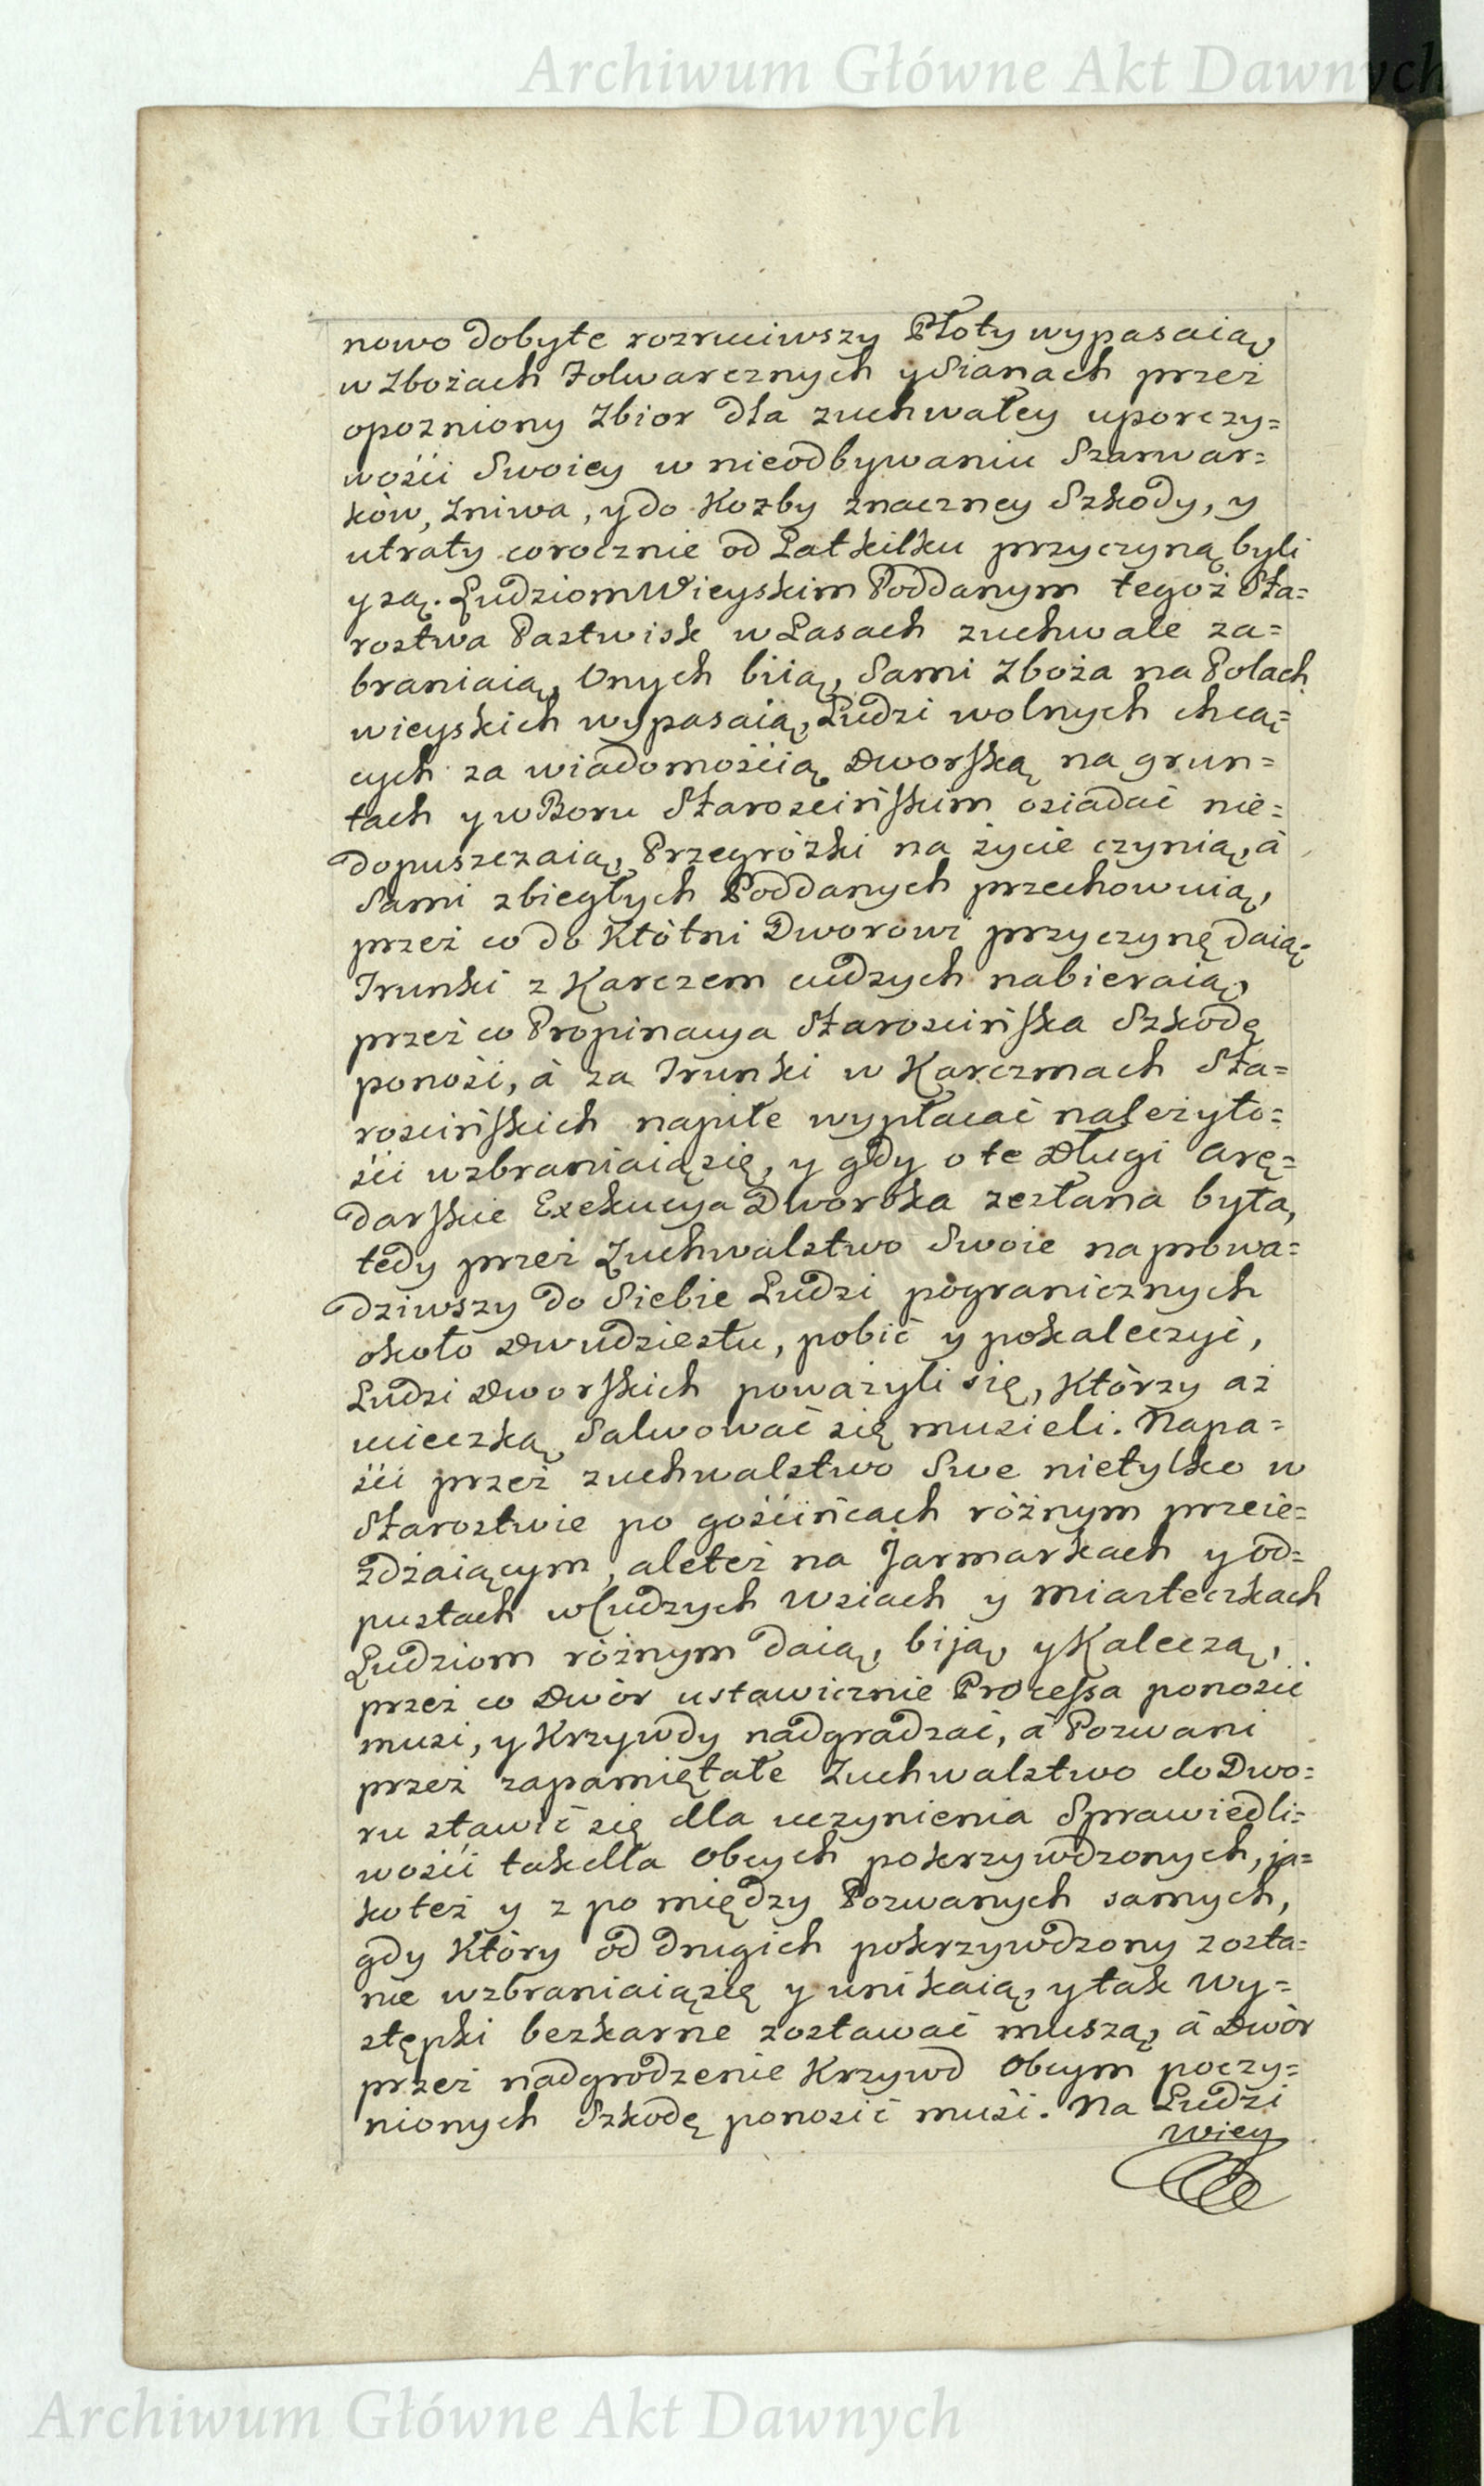 Archiwum Główne Akt Dawnych
nowo dobyte rozruciwszy Płoty wypasaią,
w Zbożach Folwarcznych y Sianach przez
opozniony Zbior dla zuchwałey uporczy=
wości Swoiey w nieodbywaniu Szarwar=
ków, Zniwa, y do Kozby znaczney Szkody, y
utraty corocznie od Lat kilku przyczyną byli
y są. Ludziom Wieyskim Poddanym tegoż Sta=
rostwa Pastwisk w Lasach zuchwale za=
braniaią, Onych biią, Sami Zboża na Polach
wieyskich wypasaią, Ludzi wolnych chcą=
cych za wiadomością Dworską na grun=
tach y w Boru Starościńskim osiadać nie=
dopuszczaią, Przegróżki na życie czynią, à
Sami zbiegłych Poddanych przechowuią,
przez co do Kłótni Dworowi przyczynę daią
Trunki z Karczem cudzych nabieraią,
przez co Propinacya Starościńska Szkodę
ponosi, à za Trunki w Karczmach Sta=
rościńskich napite wypłacać należyto=
ści wzbraniaią się, y gdy o te Długi Arę=
darskie Exekucya Dworska zesłana była,
tedy przez Zuchwalstwo Swoie naprowa=
dziwszy do Siebie Ludzi pogranicznych
około Dwudziestu, pobić y pokaleczyć,
Ludzi Dworskich poważyli się, Którzy aż
ucieczką Salwować się musieli. Napa=
ści przez zuchwalstwo Swe nietylko w
Starostwie po gościńcach różnym przeie=
zdzaiącym, aleteż na Jarmarkach y od=
pustach w Cudzych Wsiach y Miasteczkach
Ludziom różnym daią, biją, y Kaleczą,
przez co Dwór ustawicznie Processa ponosić
musi, y Krzywdy nadgradzać, à Pozwani
przez zapamiętałe Zuchwalstwo do Dwo=
ru stawić się dla uczynienia Sprawiedli=
wości tak dla Obcych pokrzywdzonych, ja=
koteż y z po między Pozwanych samych,
gdy Który od drugich pokrzywdzony zosta=
nie wzbraniaią się y unikaią, y tak Wy=
stępki bezkarne zostawać muszą, à Dwór
przez nadgrodzenie Krzywd Obcym poczy=
nionych Szkodę ponosić musi. Na Ludzi
Wiey
Archiwum Główne Akt Dawnych